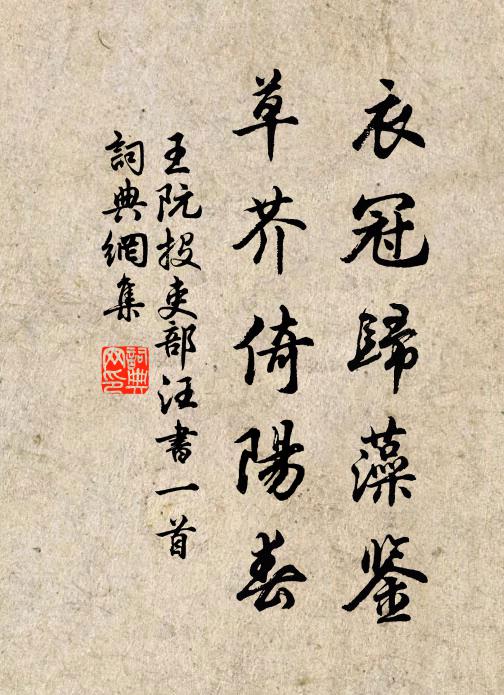 衣冠歸藻鉴
草芥倚陽春
王阮投吏部汪書一首
詞典網集
詞典网印